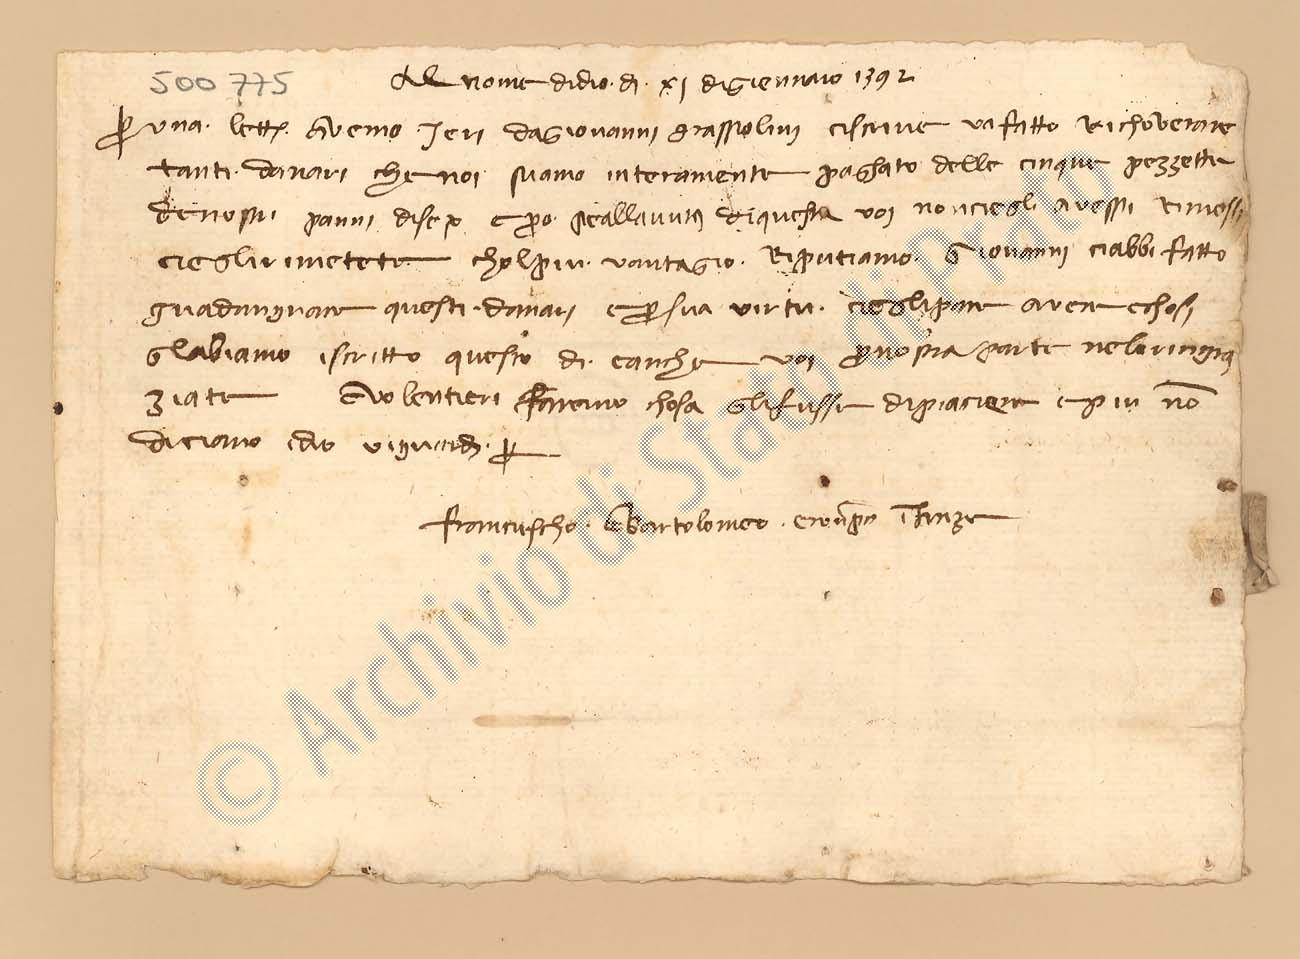 500 775
Al nome di dio. dì. xj di giennaio 1392
Per una. lettera. avemo Jeri da giovanni grassolini ci scrive v'a fatto Richoverare
tanti. danari che noi siamo interamente paghato delle cinque pezzette
de nostri panni e però se alla avuta di questa voi non ciegli avessi Rimessi
ciegli rimetete chol piu. vantagio. Riputiamo. Giovanni ci abbi fatto
guadangnare questi. danari e per sua virtu. ciegli pare avere chosi
gl abiamo iscritto questo di. e anche voi per nostra parte nelo ringra
ziate Volentieri faremo chosa gli fussi di piaciere e piu non
diciamo idio vi guardi. per
Franciescho. e Bartolomeo. e conpangni in Firenze
© Archivio di Stato di Prato